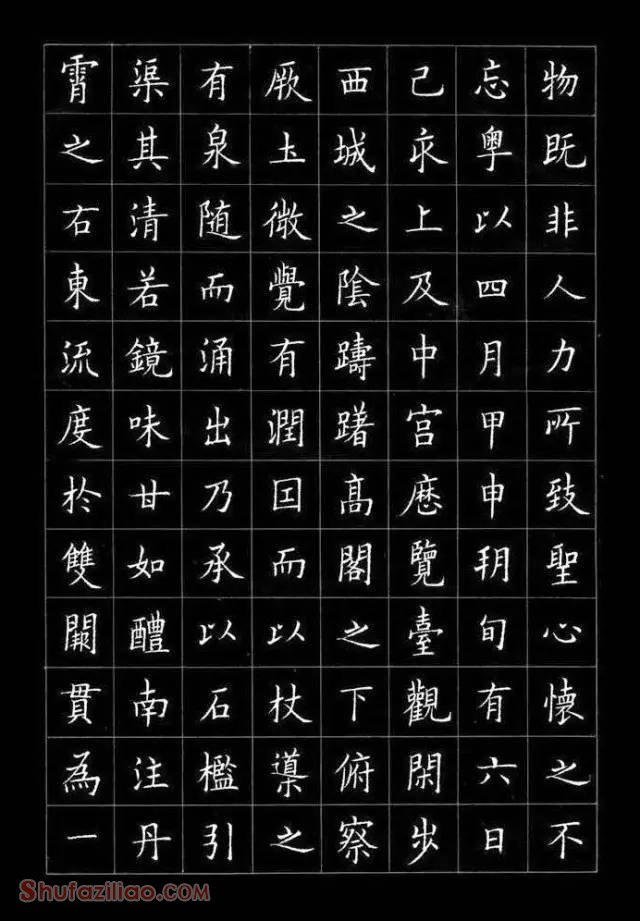 物既非人力所致聖心懷之不
忘粤以四月甲申朔旬有六日
己亥上及中宫歴覽臺觀閑步
西城之陰躊躇高閣之下俯察
厥土微覺有潤因而以杖導之
有泉随而涌出乃承以石檻引
渠其清若鏡味甘如醴南注丹
霄之右東流度於雙闕貫為一
Shufaziliao.com